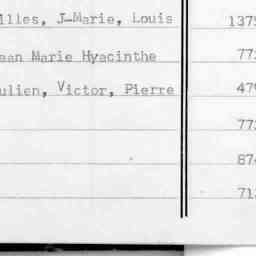 illes, J-Marie, Louis 1375
ean Marie Hyacinthe 77
ulien, Victor, Pierre 479
77
874
71